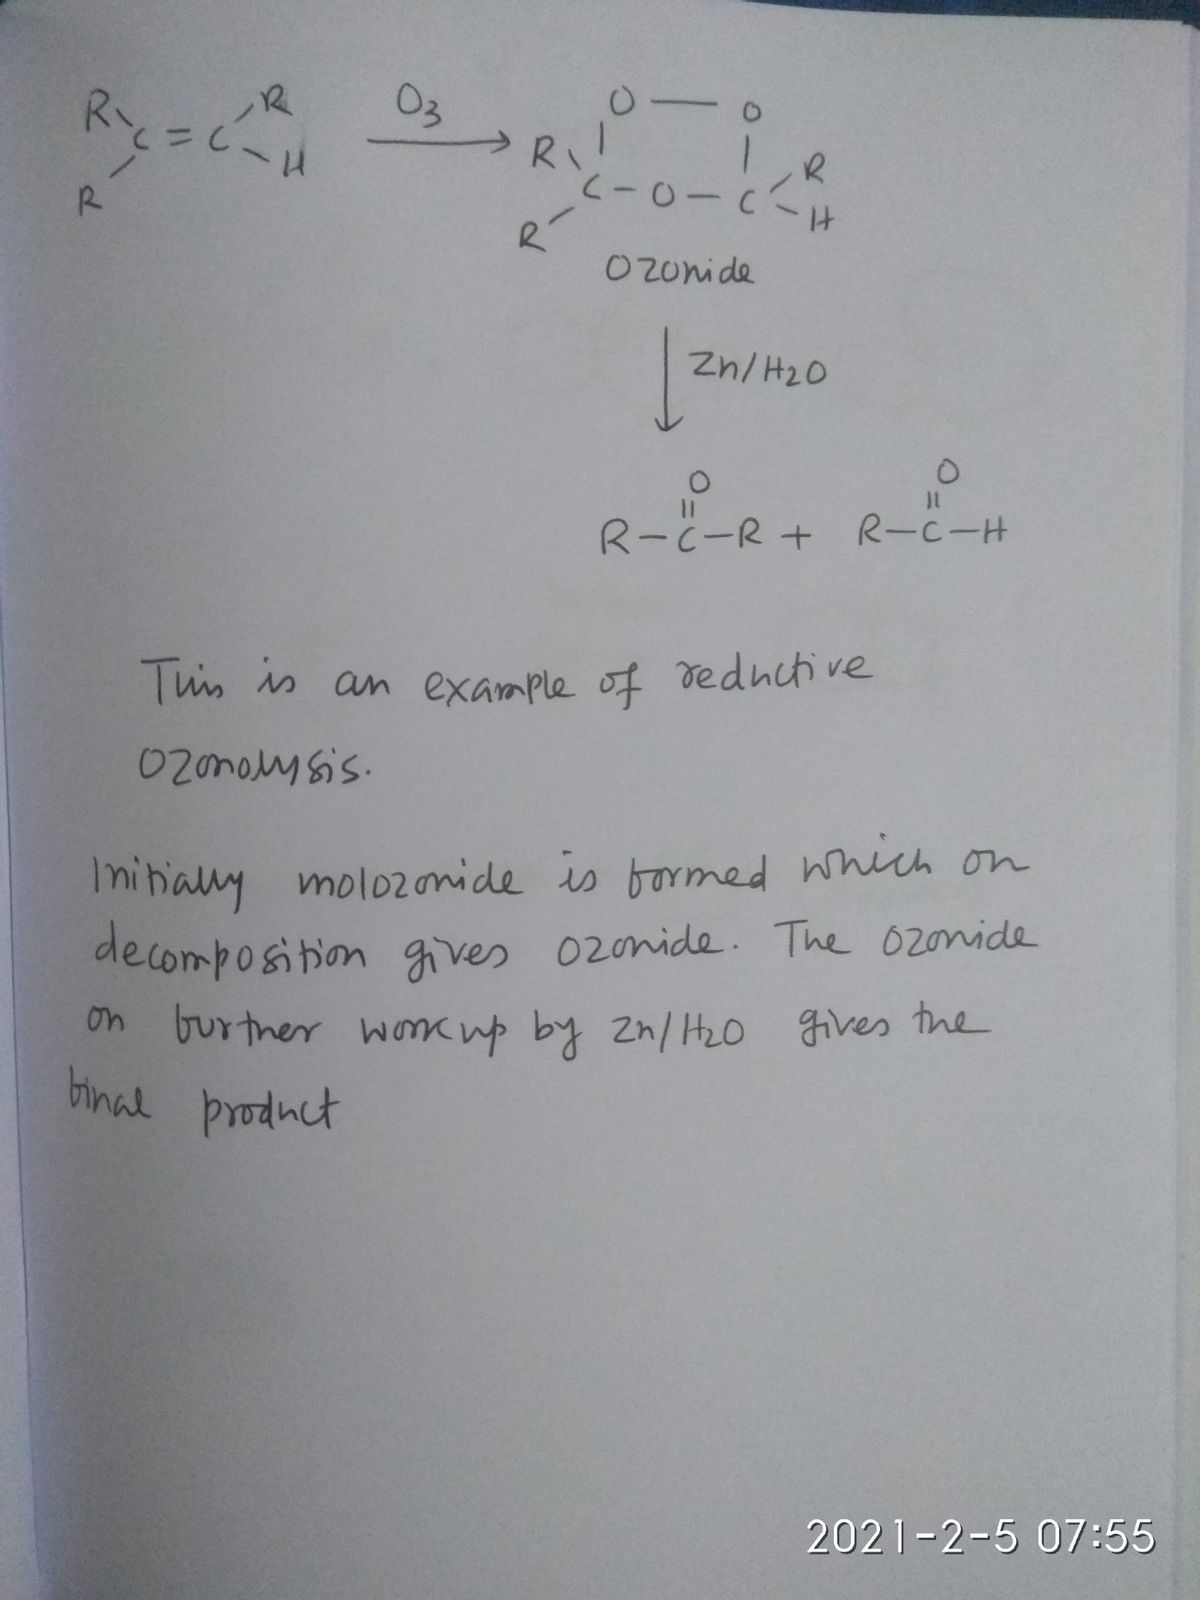 R R O3 O — O
C = C R R
R H C - O - C
R H
Ozonide
Zn/H2O
O O
R - C - R + R - C - H
This is an example of reductive
Ozonolysis.
Initially molozonide is formed which on
decomposition gives ozonide. The ozonide
on further workup by Zn/H2O gives the
final product
2021-2-5 07:55